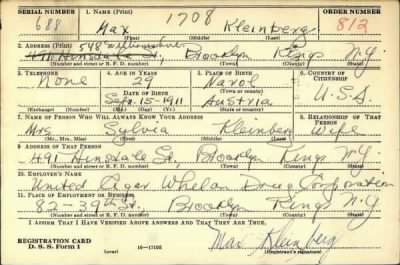 SERIAL NUMBER 1. NAME (Print) ORDER NUMBER
688 1708 812
Max Kleinberg
2. ADDRESS (Print) 548
491 Hinsdale St, Brooklyn Kings N.Y.
(Number and street or R. F. D. number) (Town) (County) (State)
3. TELEPHONE 4. AGE IN YEARS 5. PLACE OF BIRTH 6. COUNTRY OF CITIZENSHIP
None 29
DATE OF BIRTH (Town or county)
Sept. 15-1911 Austria U.S.A
(Exchange) (Number) (Mo.) (Day) (Yr.) (State or country)
7. NAME OF PERSON WHO WILL ALWAYS KNOW YOUR ADDRESS 8. RELATIONSHIP OF THAT PERSON
Mrs Sylvia Kleinberg Wife
(Mr., Mrs., Miss) (First) (Middle) (Last)
9. ADDRESS OF THAT PERSON
491 Hinsdale St, Brooklyn Kings N.Y.
(Number and street or R. F. D. number) (Town) (County) (State)
10. EMPLOYER'S NAME
United Cigar Whelan Drug Corporation
11. PLACE OF EMPLOYMENT OR BUSINESS
82-39th St, Brooklyn Kings N.Y.
(Number and street or R. F. D. number) (Town) (County) (State)
I AFFIRM THAT I HAVE VERIFIED ABOVE ANSWERS AND THAT THEY ARE TRUE.
REGISTRATION CARD
D. S. S. Form 1 (over) 16-17105 Max Kleinberg
(Registrant's signature)